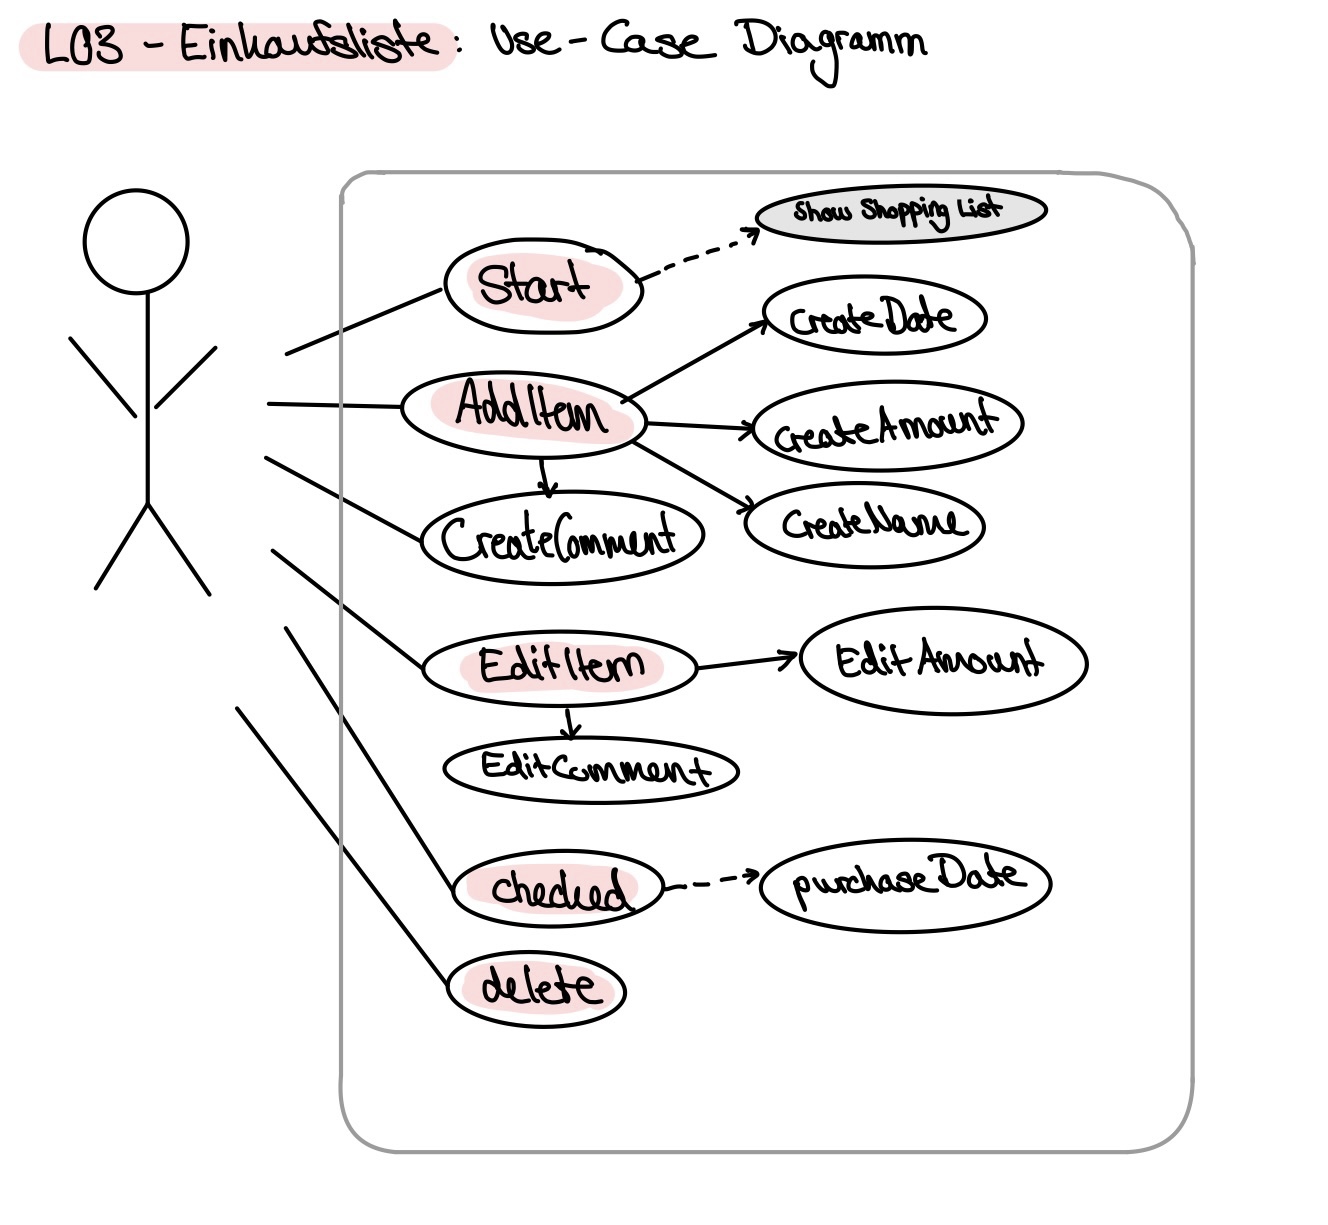 L03 - Einkaufsliste: Use-Case Diagramm
Show Shopping List
Start
createDate
AddItem
createAmount
CreateName
CreateComment
EditItem
EditAmount
EditComment
checked
purchaseDate
delete